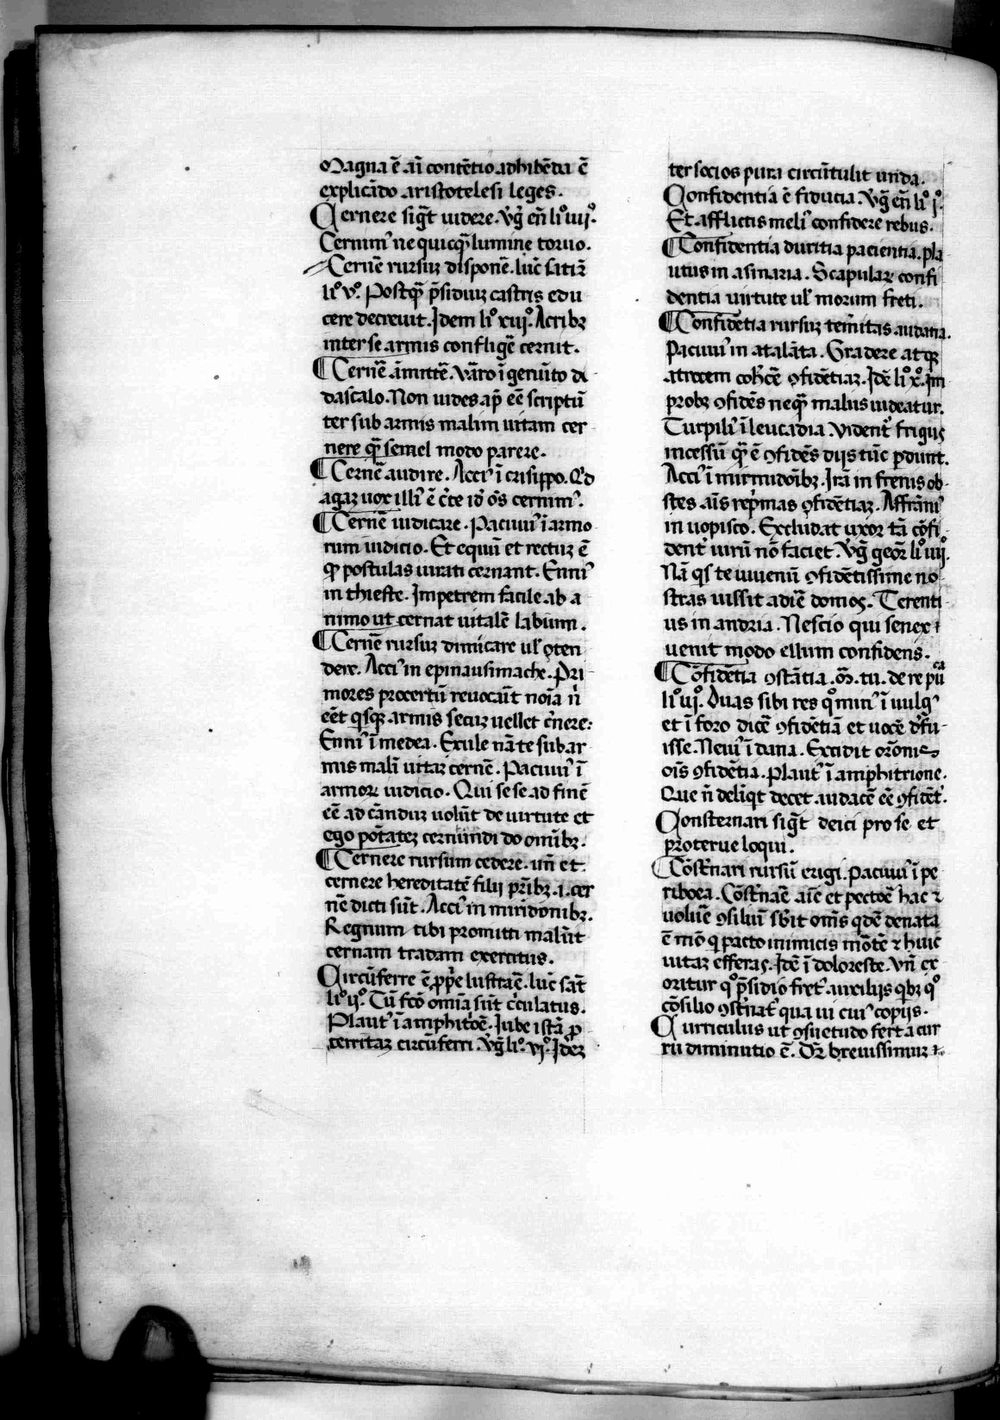 Magna ē aī contētio adhibēda ē
explicādo aristotelesi leges.
Cernere sigt̄ uidere. Vg̃ eñ liº iiijº.
Cernimꝰ ne quicq̃ lumine toruo.
Cernē rursuꝫ disponē. luc̃ satir̃
liº vº. Postq̃ p̃sidiuꝫ castris edu
cere decreuit. Idem liº xiijº. Acribꝫ
inter se armis confligē cernit.
¶ Cernē amittē. Varo ī genuīto di
dascalo. Non uides ap̃ eē scriptū
ter sub armis malim uitam cer
nere q̃ semel modo parere.
¶ Cernē audire. Acciꝰ ī crisippo. Qd̓
agaꝫ uox illiꝰ ē c̃te iō oēs cernimꝰ.
¶ Cernē iudicare. Pacuuiꝰ ī armo
rum iudicio. Et equū et rectuꝫ ē
qꝫ postulas iurati cernant. Enniꝰ
in thieste. Impetrem facile ab a
nimo ut cernat uitalē labium.
¶ Cernē rursuꝫ dimicare ul̓ ꝯten
dere. Acciꝰ in epinausimache. Pri
mores procerū reuocaūt noīa ñ
eēt qisqꝫ armis secuꝫ uellet c̃nere:
Enniꝰ ī medea. Exule nāte sub ar
mis malī uitaꝫ cernē. Pacuuiꝰ ī
armoꝝ iudicio. Qui sese ad finē
eē ad cādiuꝫ uolūt de uirtute et
ego pōtateꝫ cernūndi do omībꝫ.
¶ Cernere rursum cedere. un̄ et
cernere hereditatē filij pr̃ibꝫ .i. cer
nē dicti sūt. Acciꝰ in miridonibꝫ.
Regnum tibi promitti malūt
cernam tradam exercitus.
Circūferre ē ꝓpe lustraē. luc̃ sat̃
liº ijº. Tū fcō omīa sūt c̃culatus.
Plautꝰ ī amphitōe. Iube istā ꝑ
cerritaꝫ circūferri. Vg̃ liº viº. Ideꝫ
ter socios pura circūtulit unda.
Confidentia ē fiducia. Vg̃ eñ liº iº.
Et afflictis meliꝰ confidere rebus.
¶ Confidentia duritia pacientia. pla
utus in asinaria. Scapulaꝝ confi
dentia uirtute ul̓ morum freti.
¶ Confidētia rursuꝫ temītas audatia.
Pacuuiꝰ in atalāta. Gradere atqꝫ
atrocem cohc̃ē ꝯfidētiaꝫ. Idē liº xº. im
probꝫ ꝯfidēs neq̃ malus uideatur.
Turpiliꝰ ī leucadia. Videntꝰ frigus
incessū q̃ ē ꝯfidēs dijs tūc ꝑdunt.
Acciꝰ ī mirmidoībꝫ. Irā in frenis ob
stes aīs rep̃mas ꝯfidētiaꝫ. Affraniꝰ
in uopisco. Excludat uxor tā cōfi
dentꝰ uirū nō faciet. Vg̃ geor̃ liº iiijº.
Nā qis te iuuenū ꝯfidētissime no
stras iussit adiē domos. Terenti
us in andria. Nescio qui senex ı
uenit modo ellum confidens.
¶ Cōfidētia ꝯstātia. M̄. tu. de re pub̃
liº iijº. Duas sibi res qº minꝰ ī uulgꝰ
et ī foro dicē ꝯfidētiā et uocē d̓fu
isse. Neuiꝰ ī dana. Excidit orōnis
oīs ꝯfidētia. Plautꝰ ī amphitrione.
Que ñ deliqt̃ decet audacē eē ꝯfidēt̃.
Consternari sigt̄ deici pro se et
proterue loqui.
Cōstr̃nari rursū erigi. Pacuuiꝰ ī pe
riboea. Cōst̃naē aīē et pectoē hac ⁊
uoluē ꝯsiliū sb̓it om̃s qdē denata
ē mō q pacto inimicis mōtē ⁊ huic
uitaꝫ efferas. Idē ī doloreste. Vn̄ ex
oritur qº p̃sidio fretꝰ auxilijs qbꝫ qº
cōsilio ꝯst̃natꝰ qua ui cuiꝰ copijs.
Curriculus ut ꝯsuetudo fert a cur
ru diminutio ē. Dr̃ breuissimuꝫ ⁊